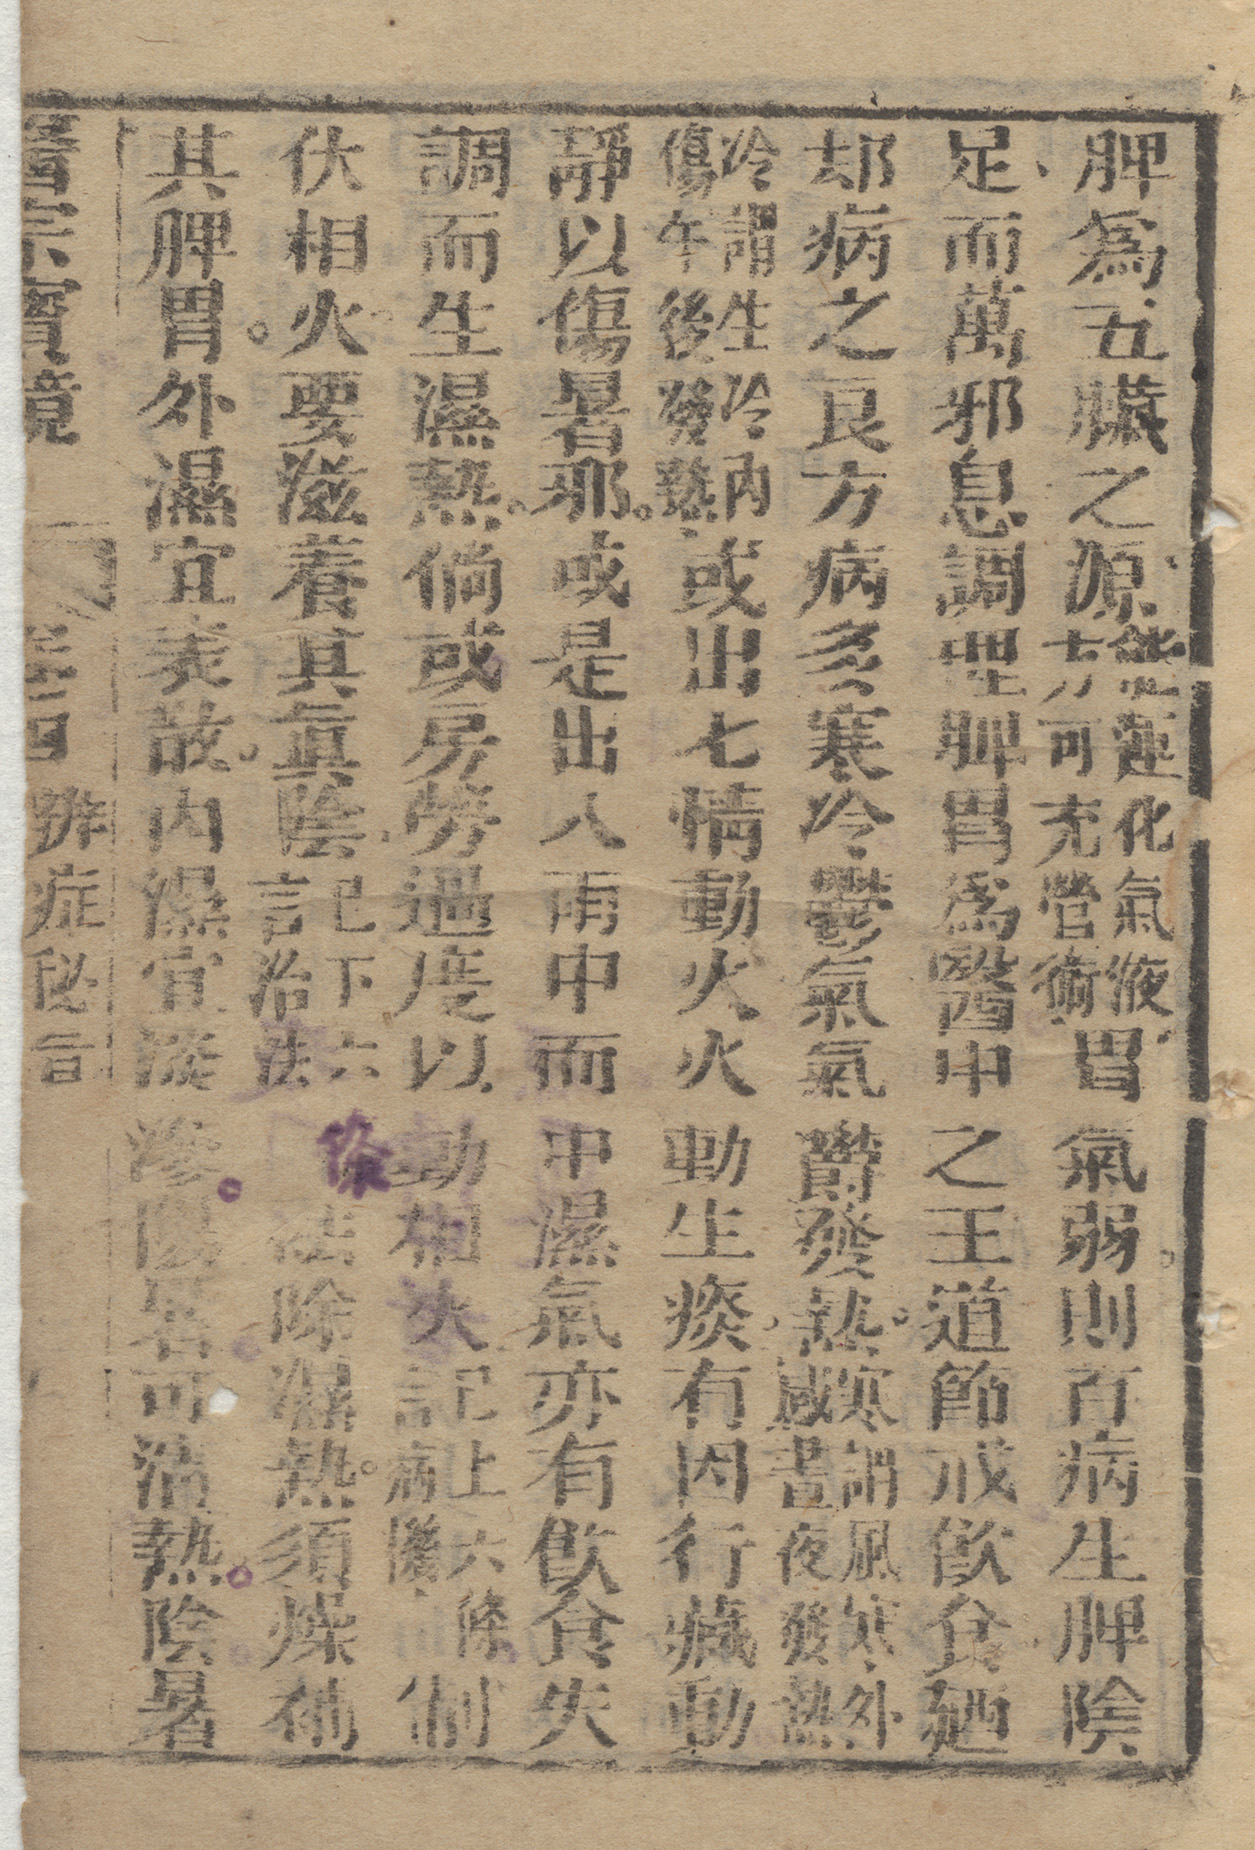 脾為五臟之源能運化氣液方可充營衛胃氣弱則百病生脾陰
足而萬邪息調理脾胃為醫中之王道節戒飲食廼
却病之良方病多寒冷鬱氣氣鬱發熱寒謂風寒外感晝夜發熱
冷謂生冷內傷午後發熱或出七情動火火動生痰有因行藏動
靜以傷暑邪或是出入雨中而中濕氣亦有飲食失
調而生濕熱倘或房勞過度以動相火記上六條言病機制
伏相火要滋養其真陰記下六言治法條法除濕熱須燥補
其脾胃外濕宜表散內濕宜淡滲陽暑可清熱陰暑
醫宗寶鏡 卷四 辨症秘旨